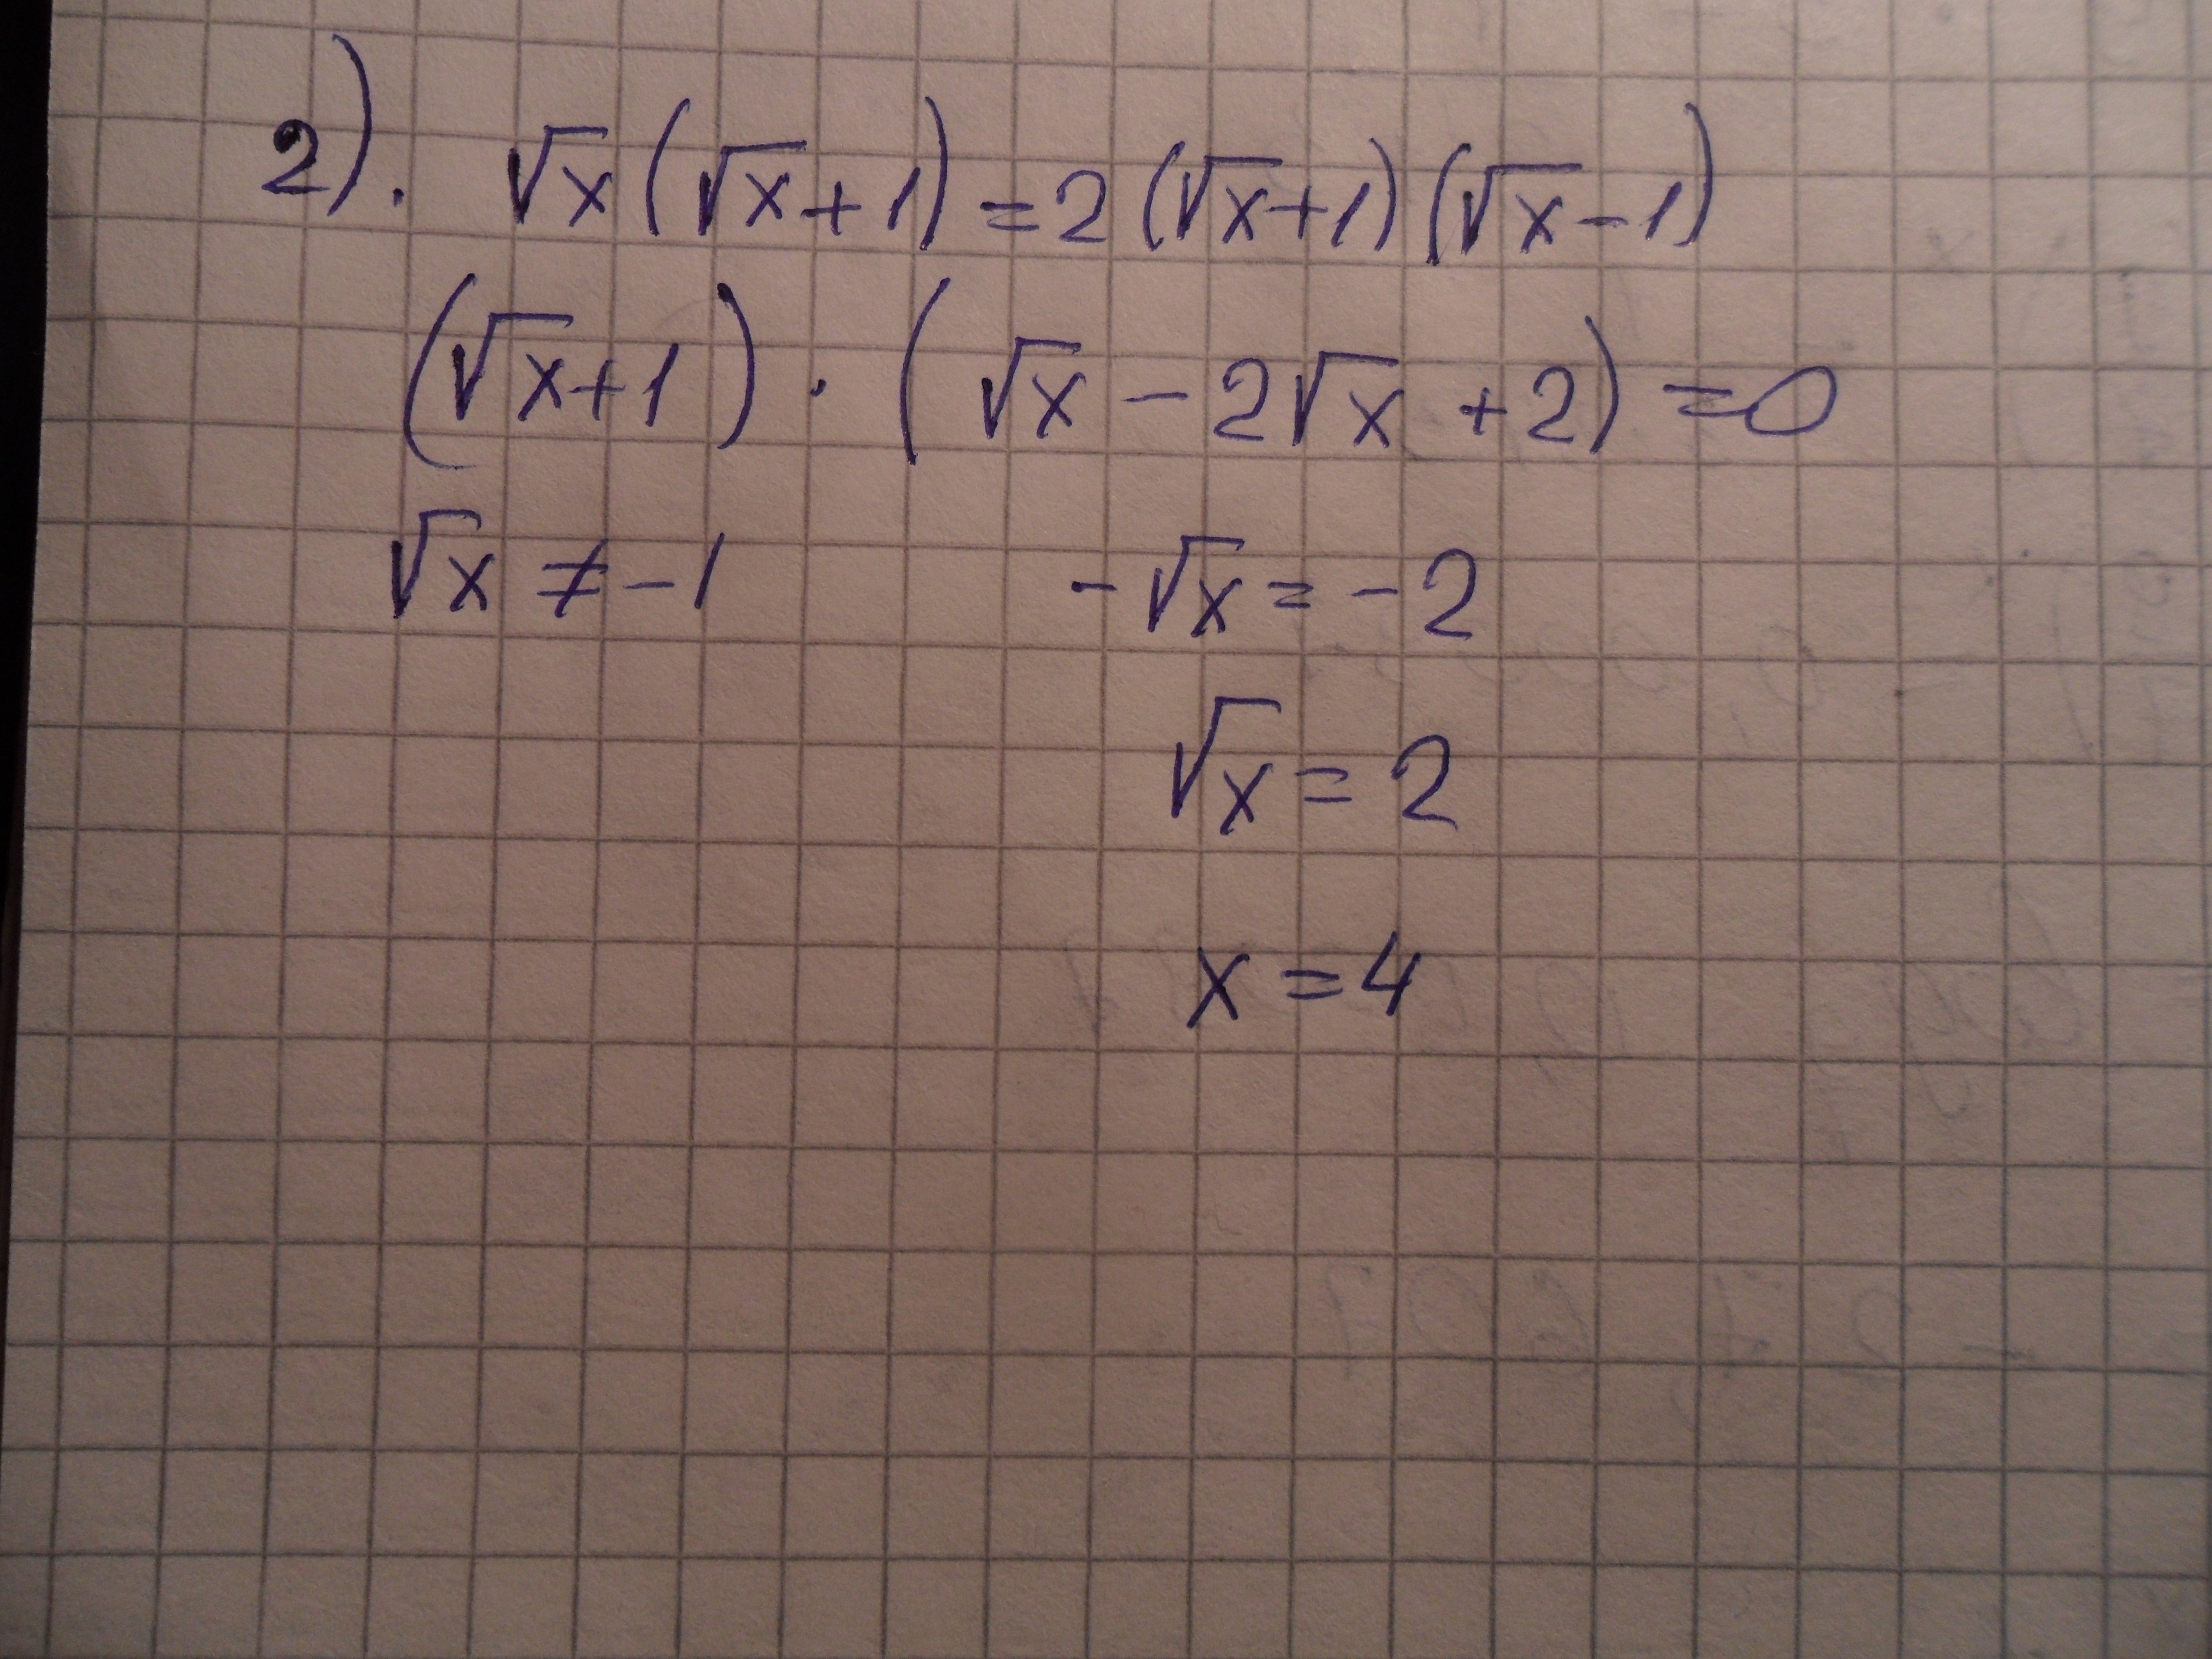 2). √x(√x+1)=2(√x+1)(√x-1)
(√x+1)·(√x-2√x+2)=0
√x≠-1 -√x=-2
√x=2
x=4